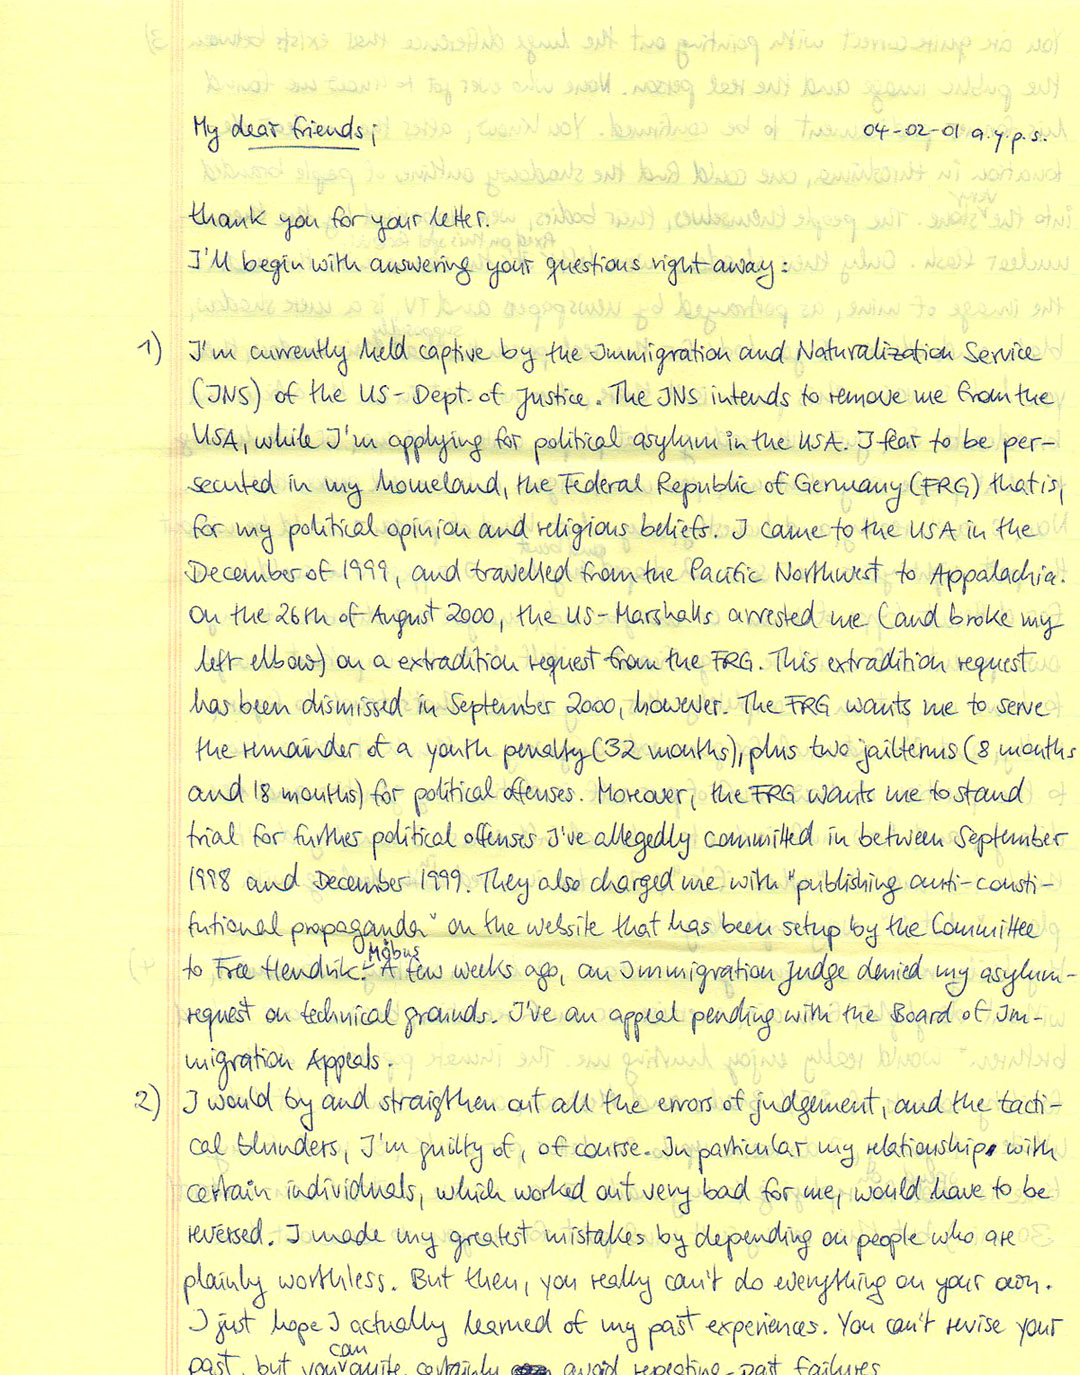 My dear friends; 04-02-01 a.y.p.s.
thank you for your letter.
I'll begin with answering your questions right away:
1) I'm currently held captive by the Immigration and Naturalization Service
(INS) of the US-Dept. of Justice. The INS intends to remove me from the
USA, while I'm applying for political asylum in the USA. I fear to be per-
secuted in my homeland, the Federal Republic of Germany (FRG) that is,
for my political opinion and religious beliefs. I came to the USA in the
December of 1999, and travelled from the Pacific Northwest to Appalachia.
On the 26th of August 2000, the US-Marshalls arrested me (and broke my
left elbow) on a extradition request from the FRG. This extradition request
has been dismissed in September 2000, however. The FRG wants me to serve
the remainder of a youth penalty (32 months), plus two jailterms (8 months
and 18 months) for political offenses. Moreover, the FRG wants me to stand
trial for further political offenses I've allegedly committed in between September
1998 and December 1999. They also charged me with "publishing anti-consti-
tutional propaganda" on the website that has been setup by the Committee
to Free Hendrik Möbus. A few weeks ago, an Immigration Judge denied my asylum-
request on technical grounds. I've an appeal pending with the Board of Im-
migration Appeals.
2) I would try and straigthen out all the errors of judgement, and the tacti-
cal blunders, I'm guilty of, of course. In particular my relationships with
certain individuals, which worked out very bad for me, would have to be
reversed. I made my greatest mistakes by depending on people who are
plainly worthless. But then, you really can't do everything on your own.
I just hope I actually learned of my past experiences. You can't revise your
past, but you can quite certainly avoid repeating past failures